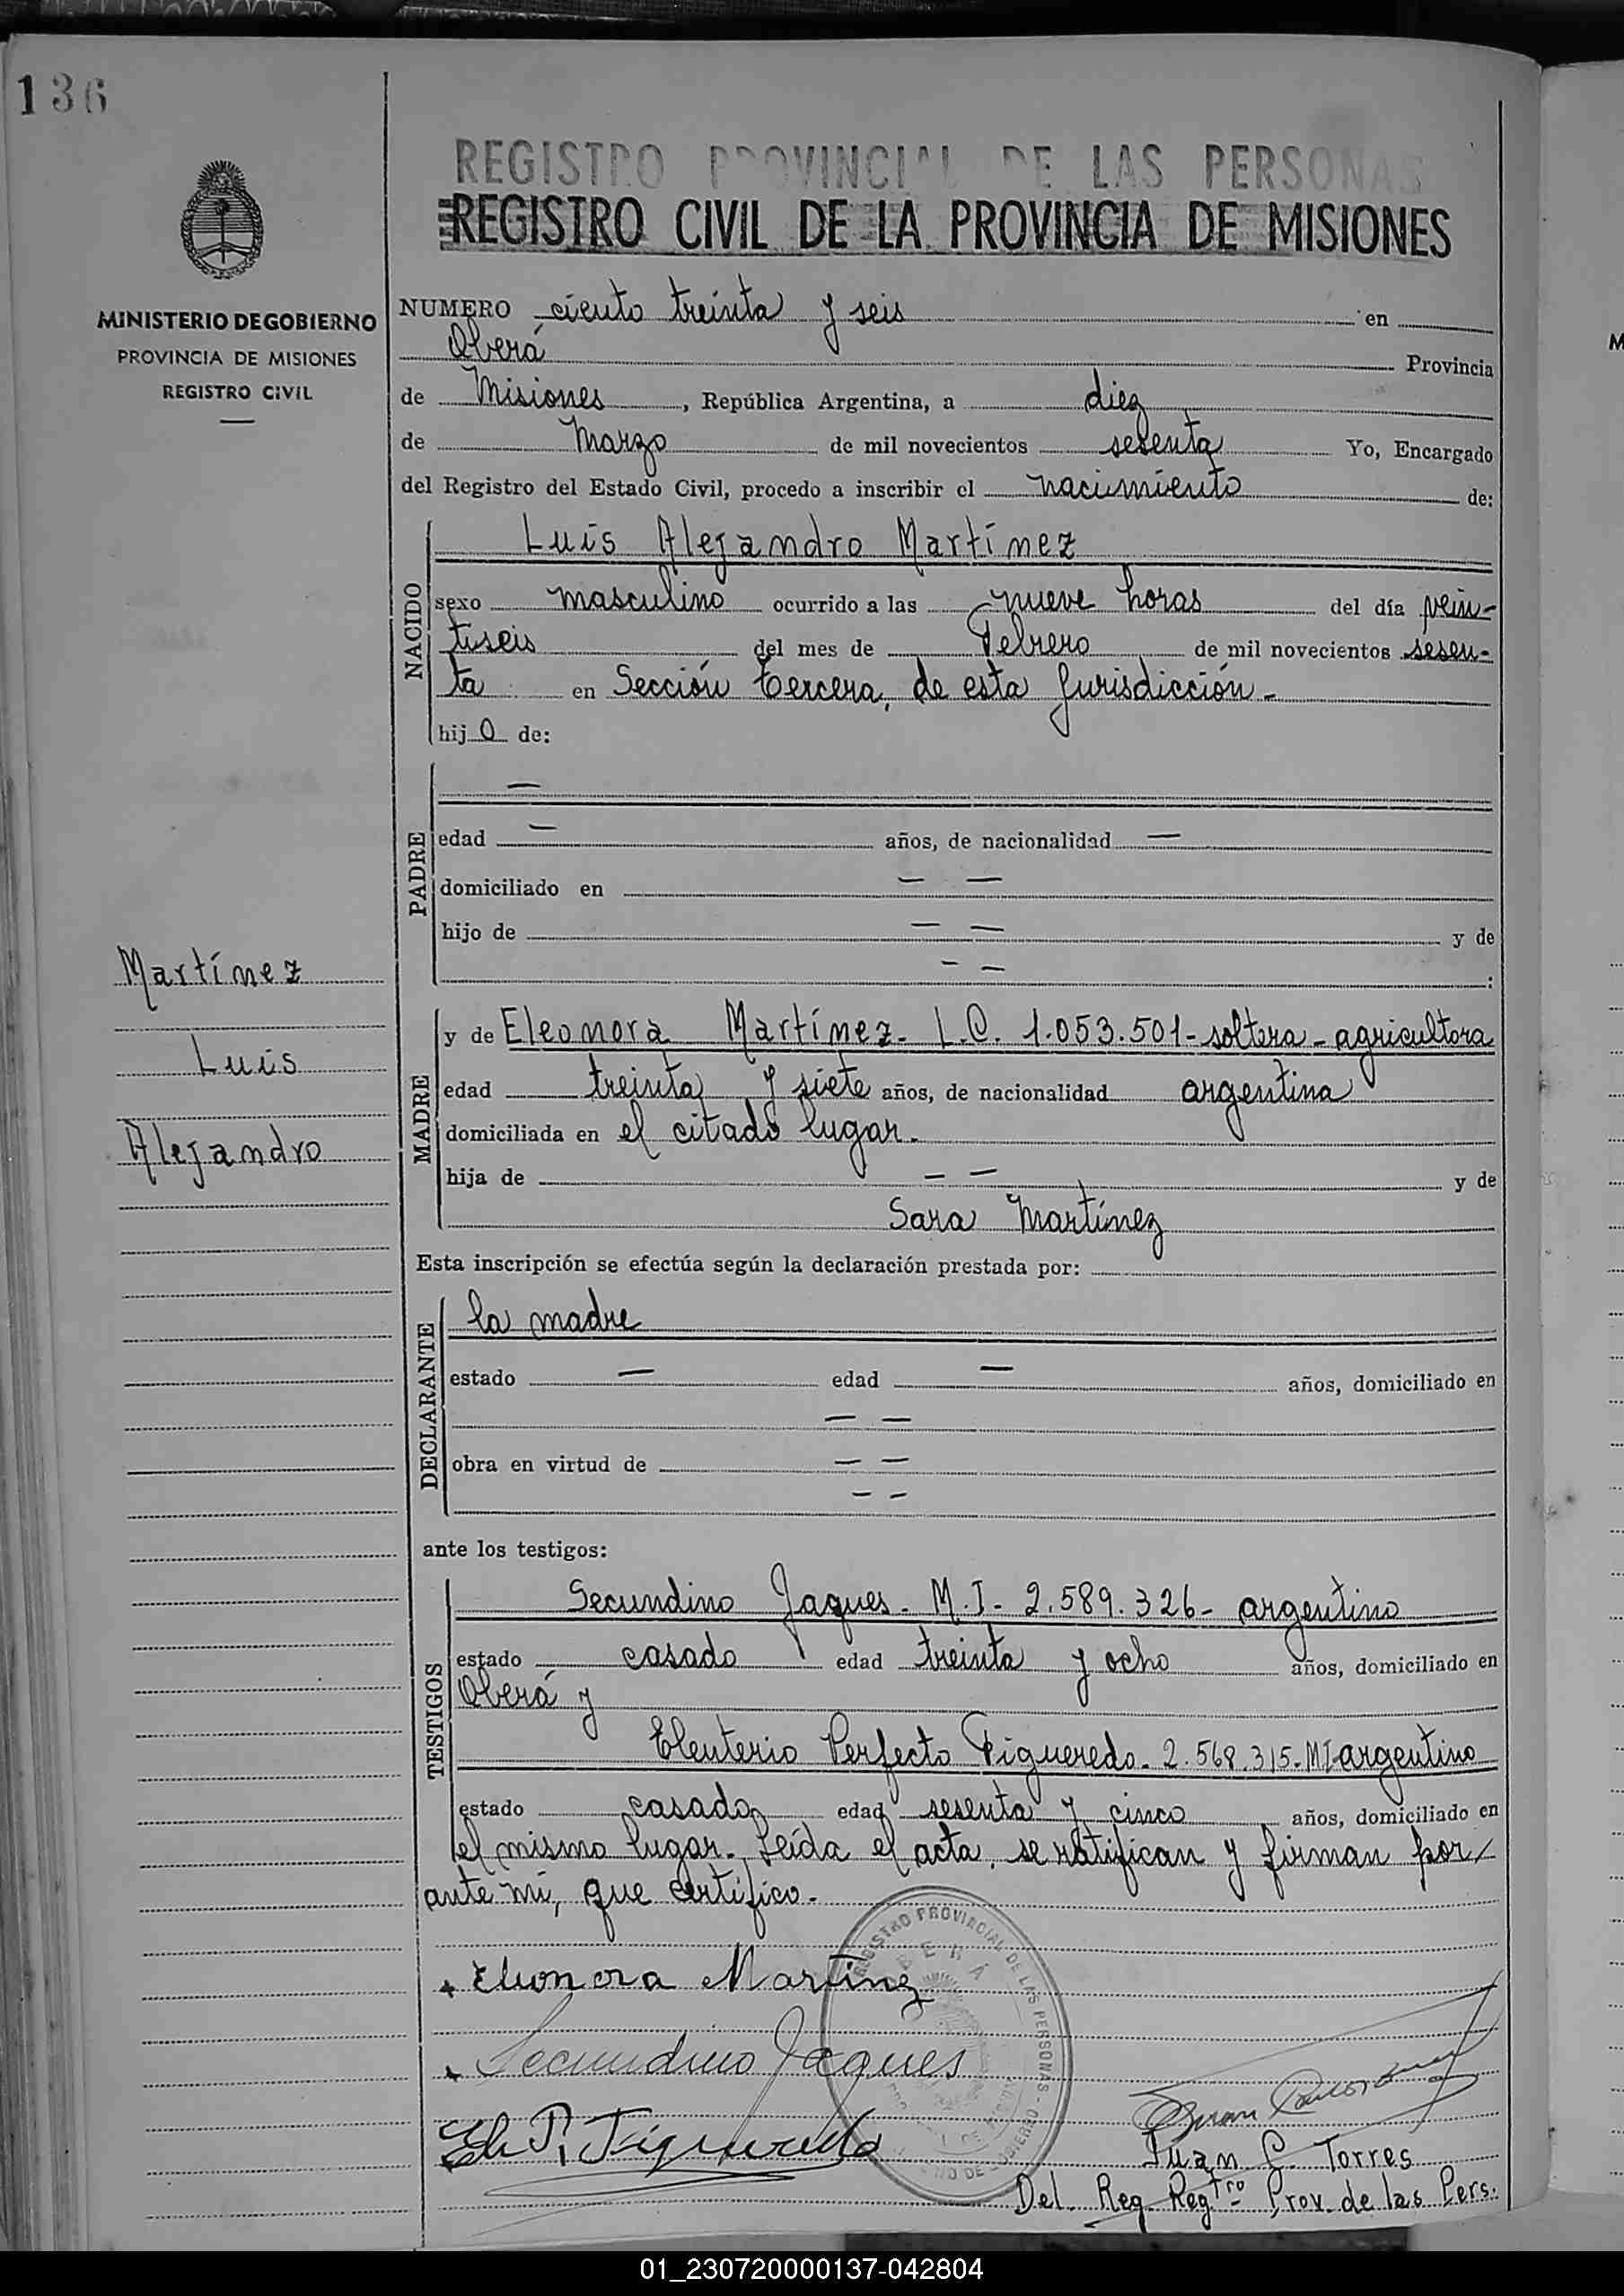 136
REGISTRO PROVINCIAL DE LAS PERSONAS
REGISTRO CIVIL DE LA PROVINCIA DE MISIONES
MINISTERIO DE GOBIERNO
PROVINCIA DE MISIONES
REGISTRO CIVIL
NUMERO ciento treinta y seis en
Oberá Provincia
de Misiones, República Argentina, a diez
de Marzo de mil novecientos sesenta Yo, Encargado
del Registro del Estado Civil, procedo a inscribir el nacimiento de:
NACIDO
Luis Alejandro Martínez
sexo masculino ocurrido a las nueve horas del día vein-
tiseis del mes de Febrero de mil novecientos sesen-
ta en Sección tercera, de esta jurisdicción.-
hijo de:
PADRE
—
edad — años, de nacionalidad —
domiciliado en — —
hijo de — — y de
— — :
Martínez
Luis
Alejandro
MADRE
y de Eleonora Martínez- L.C. 1.053.501- soltera- agricultora
edad treinta y siete años, de nacionalidad argentina
domiciliada en el citado lugar.
hija de — — y de
Sara Martínez
Esta inscripción se efectúa según la declaración prestada por:
DECLARANTE
la madre
estado — edad — años, domiciliado en
— —
obra en virtud de — —
— —
ante los testigos:
TESTIGOS
Secundino Jaques- M.I- 2.589.326- argentino
estado casado edad treinta y ocho años, domiciliado en
Oberá y
Eleuterio Perfecto Figueredo- 2.568.315- MI argentino
estado casado, edad sesenta y cinco años, domiciliado en
el mismo lugar. Leída el acta, se ratifican y firman por/
ante mí, que certifico.-
Eleonora Martinez
Secundino Jaques
El. P. Figueredo
REGISTRO PROVINCIAL DE LAS PERSONAS
OBERÁ
Juan C. Torres
Del. Reg. Regtro Prov. de las Pers.
01_230720000137-042804